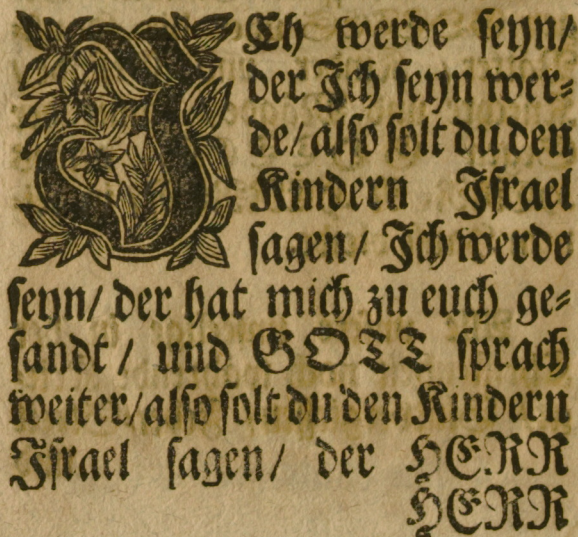 ICh werde seyn/
der Ich seyn wer⸗
de/ also solt du den
Kindern Israel
sagen/ Ich werde
seyn/ der hat mich zu euch ge⸗
sandt/ und GOTT sprach
weiter/ also solt du den Kindern
Israel sagen/ der HERR
HERR